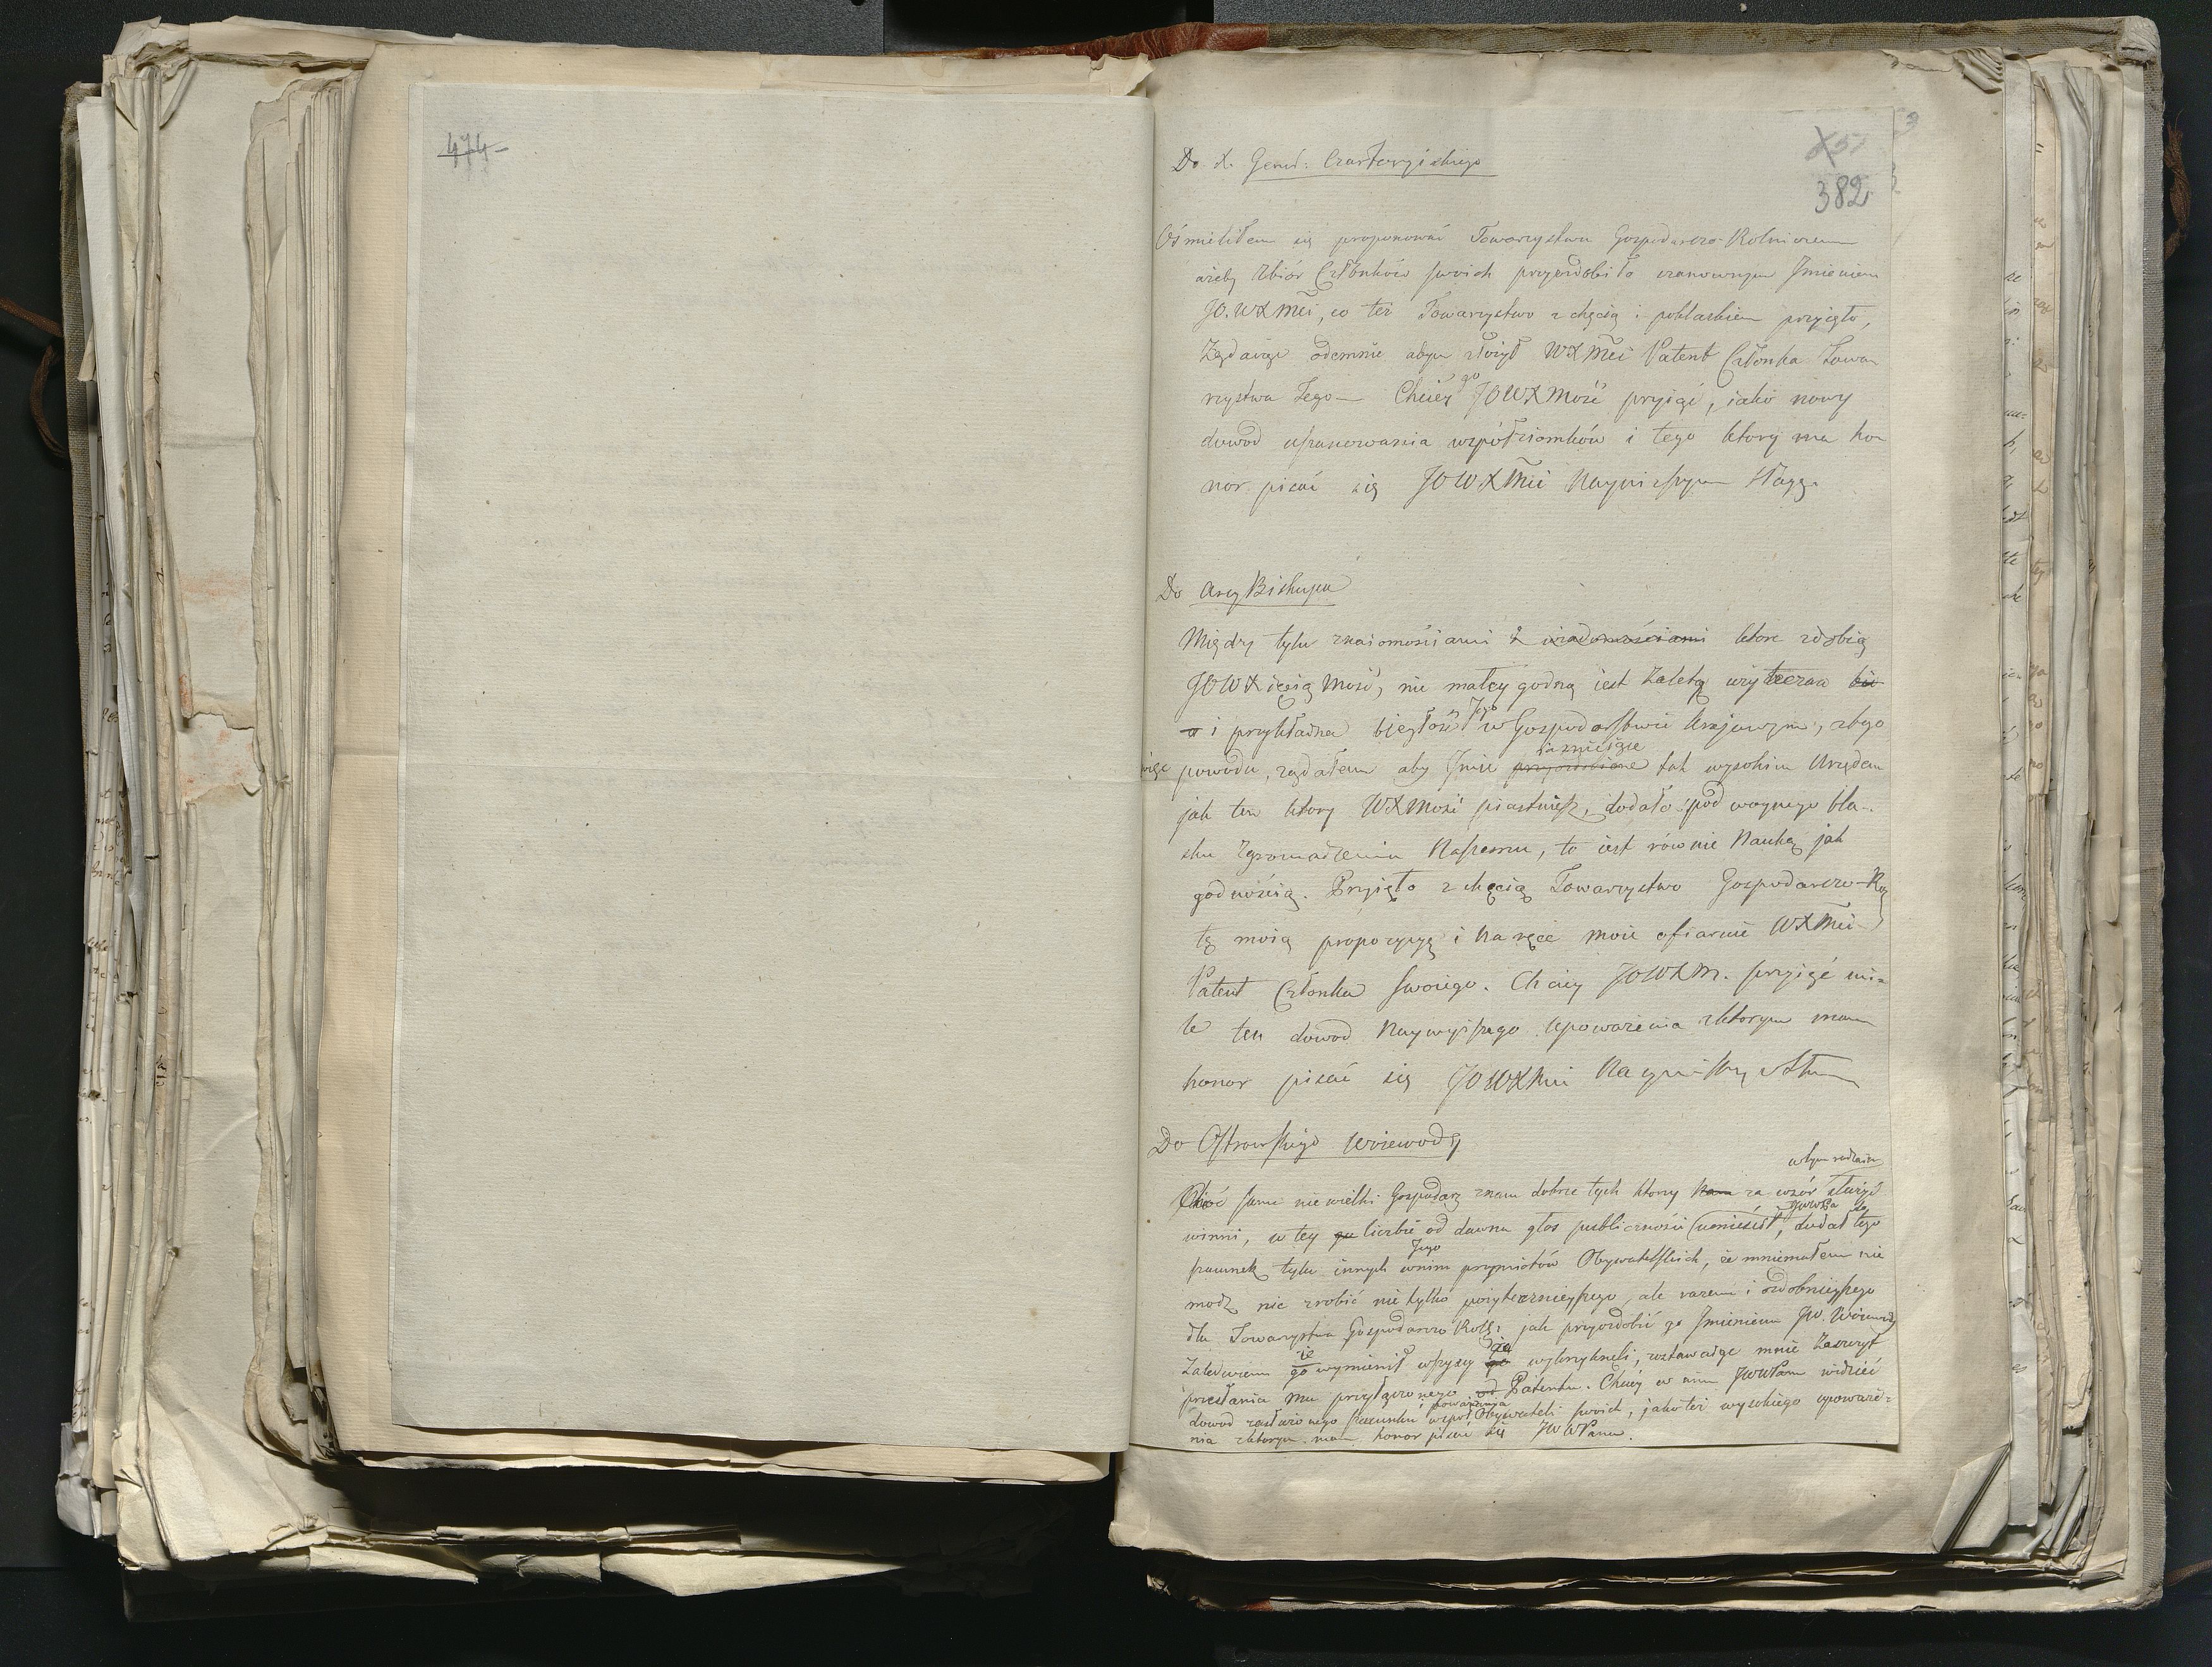 474
X51
382
3
Do X. Genel: Czartoryiskiego
Ośmieliłem się proponować Towarzystwu Gospodarczo-Rolniczemu
ażeby zbiór Członków swoich przyozdobiło szanownym Jmieniem
JO. WXMci, co też Towarzystwo z chęcią i poklaskiem przyięło,
Żądaiąc odemnie abym złożył WXMci Patent Członka Towa
rzystwa Tego — Chciey go JOWXMość przyiąć, iako nowy
dowód uszanowania współziomków i tego ktory ma ho
nor pisać się JOWXMci Nayniższym Sługą
Do ArcyBiskupa
Między tylu znaiomościami i wiadomościami ktore zdobią
JOWXiężą Mość, nie małey godną iest Zaletą użyteczna bie
a i przykładna biegłość Jego w Gospodarstwie kraiowym, z tego
więc powodu, żądałem aby Jmie przyozdobione iaśnieiące tak wysokim Urzędem
jak ten ktory WXMość piastuiesz, dodało spodwoynego bla-
sku Zgromadzeniu Naszemu, to iest równie Nauką jak
godnością. Przyięło z chęcią Towarzystwo Gospodarczo-Rol
tę moią propozycyą i na ręce moie ofiaruie WXMci
Patent Członka swoiego. Chciey JOWXM. przyiąć mi-
le ten dowód Naywyższego Upoważenia z ktorym mam
honor pisać się JOWXMci Nayniższy Słu
Do Ostrowskiego Woiewody
Choć sam niewielki Gospodarz znam dobrze tych ktorzy nam za wzór w tym rodzaiu służyć
winni, w tey go liczbie od dawna głos publiczności umieścił JWWPa, dodał do tego
szacunek tylu innych w nim Jego przymiotów Obywatelskich, że mniemałem nie
módz nic zrobić nie tylko pożytecznieyszego, ale razem i ozdobnieyszego
dla Towarzystwa Gospodarczo Roll: jak przyozdobić go Jmieniem JW. Woiewody
Zaledwiem go ie wymienił wszyscy go wykrzyknęli, zostawuiąc mnie Zaszczyt
przesłania mu przyłączonego od Patentu. Chciey w nim JWWPan widzieć
dowód zasłużonego szacunku i poważania współ Obywateli swoich, jako też wysokiego upoważe-
nia z ktorym mam honor pisać się JWWPana.